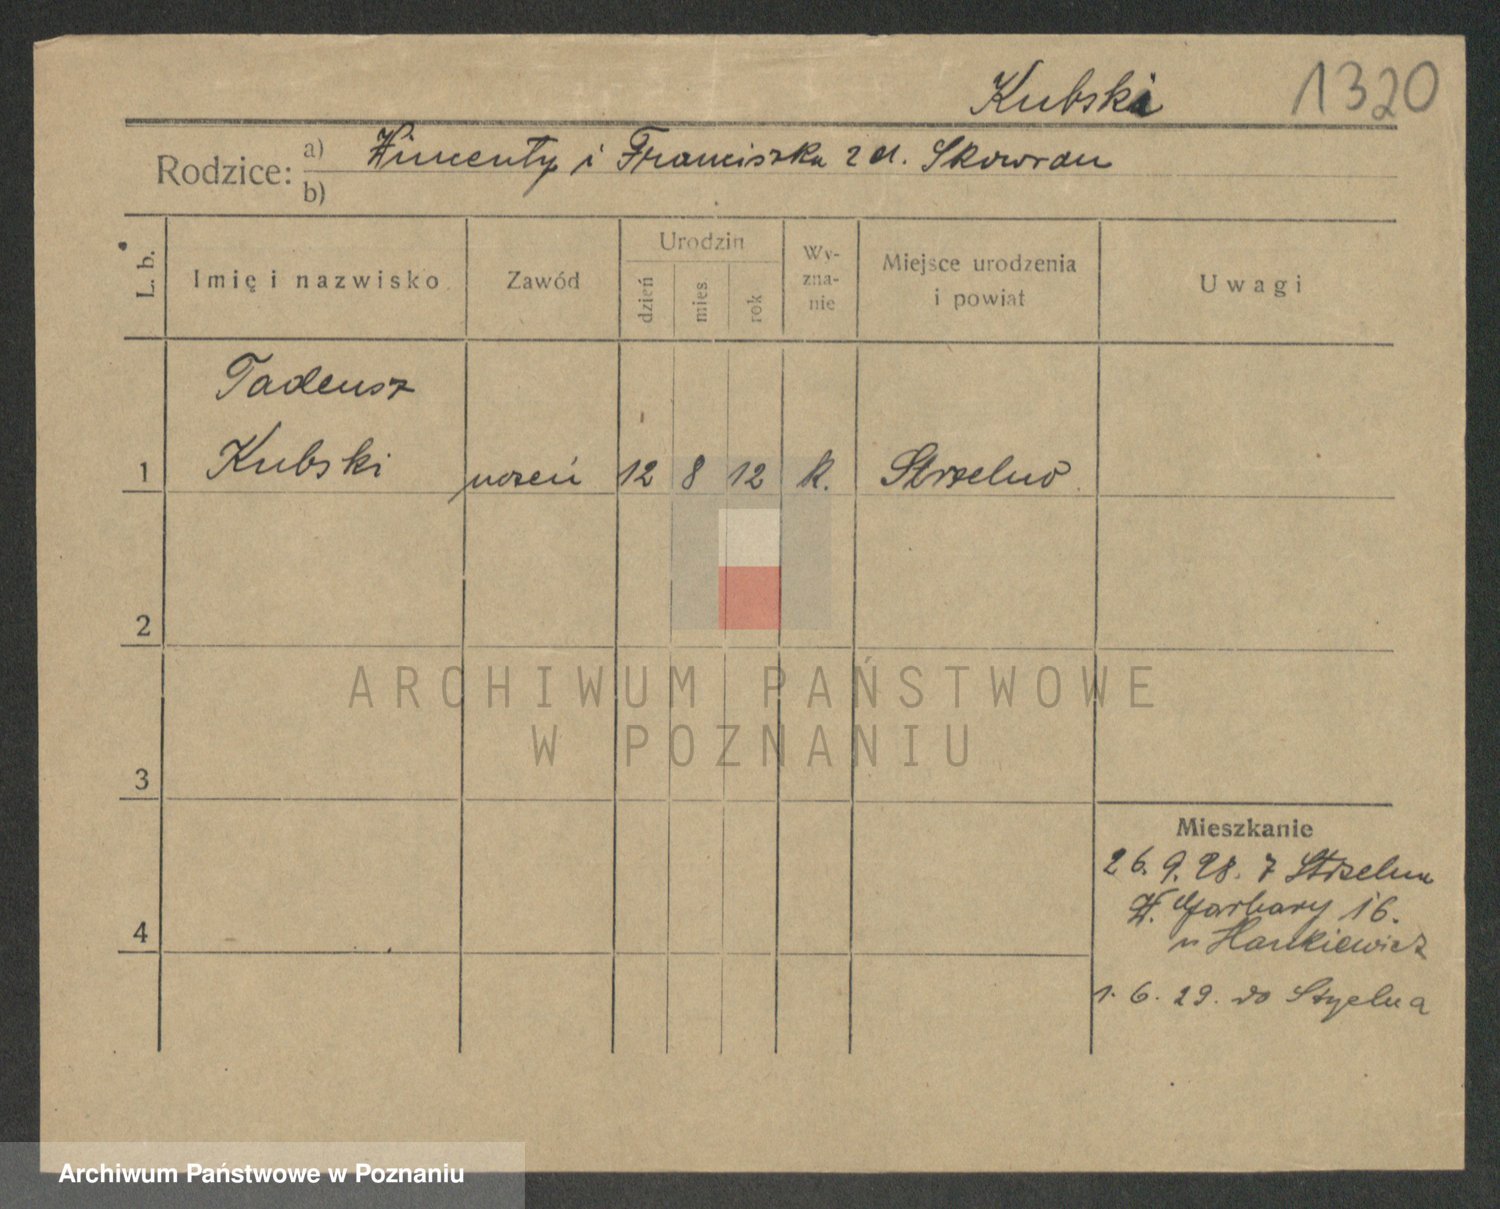 Kubski 1320
Rodzice: a) Wincenty i Franciszka z d. Skowron
b)
L. b. Imię i nazwisko Zawód Urodzin dzień mies rok Wy-zna-nie Miejsce urodzenia i powiat Uwagi
Tadeusz
1 Kubski uczeń 12 8 12 k. Strzelno
2
3
4
Mieszkanie
26. 9. 28. z Strzelna
W. Garbary 16.
u Hankiewicz
1. 6. 29. do Strzelna
ARCHIWUM PAŃSTWOWE
W POZNANIU
Archiwum Państwowe w Poznaniu